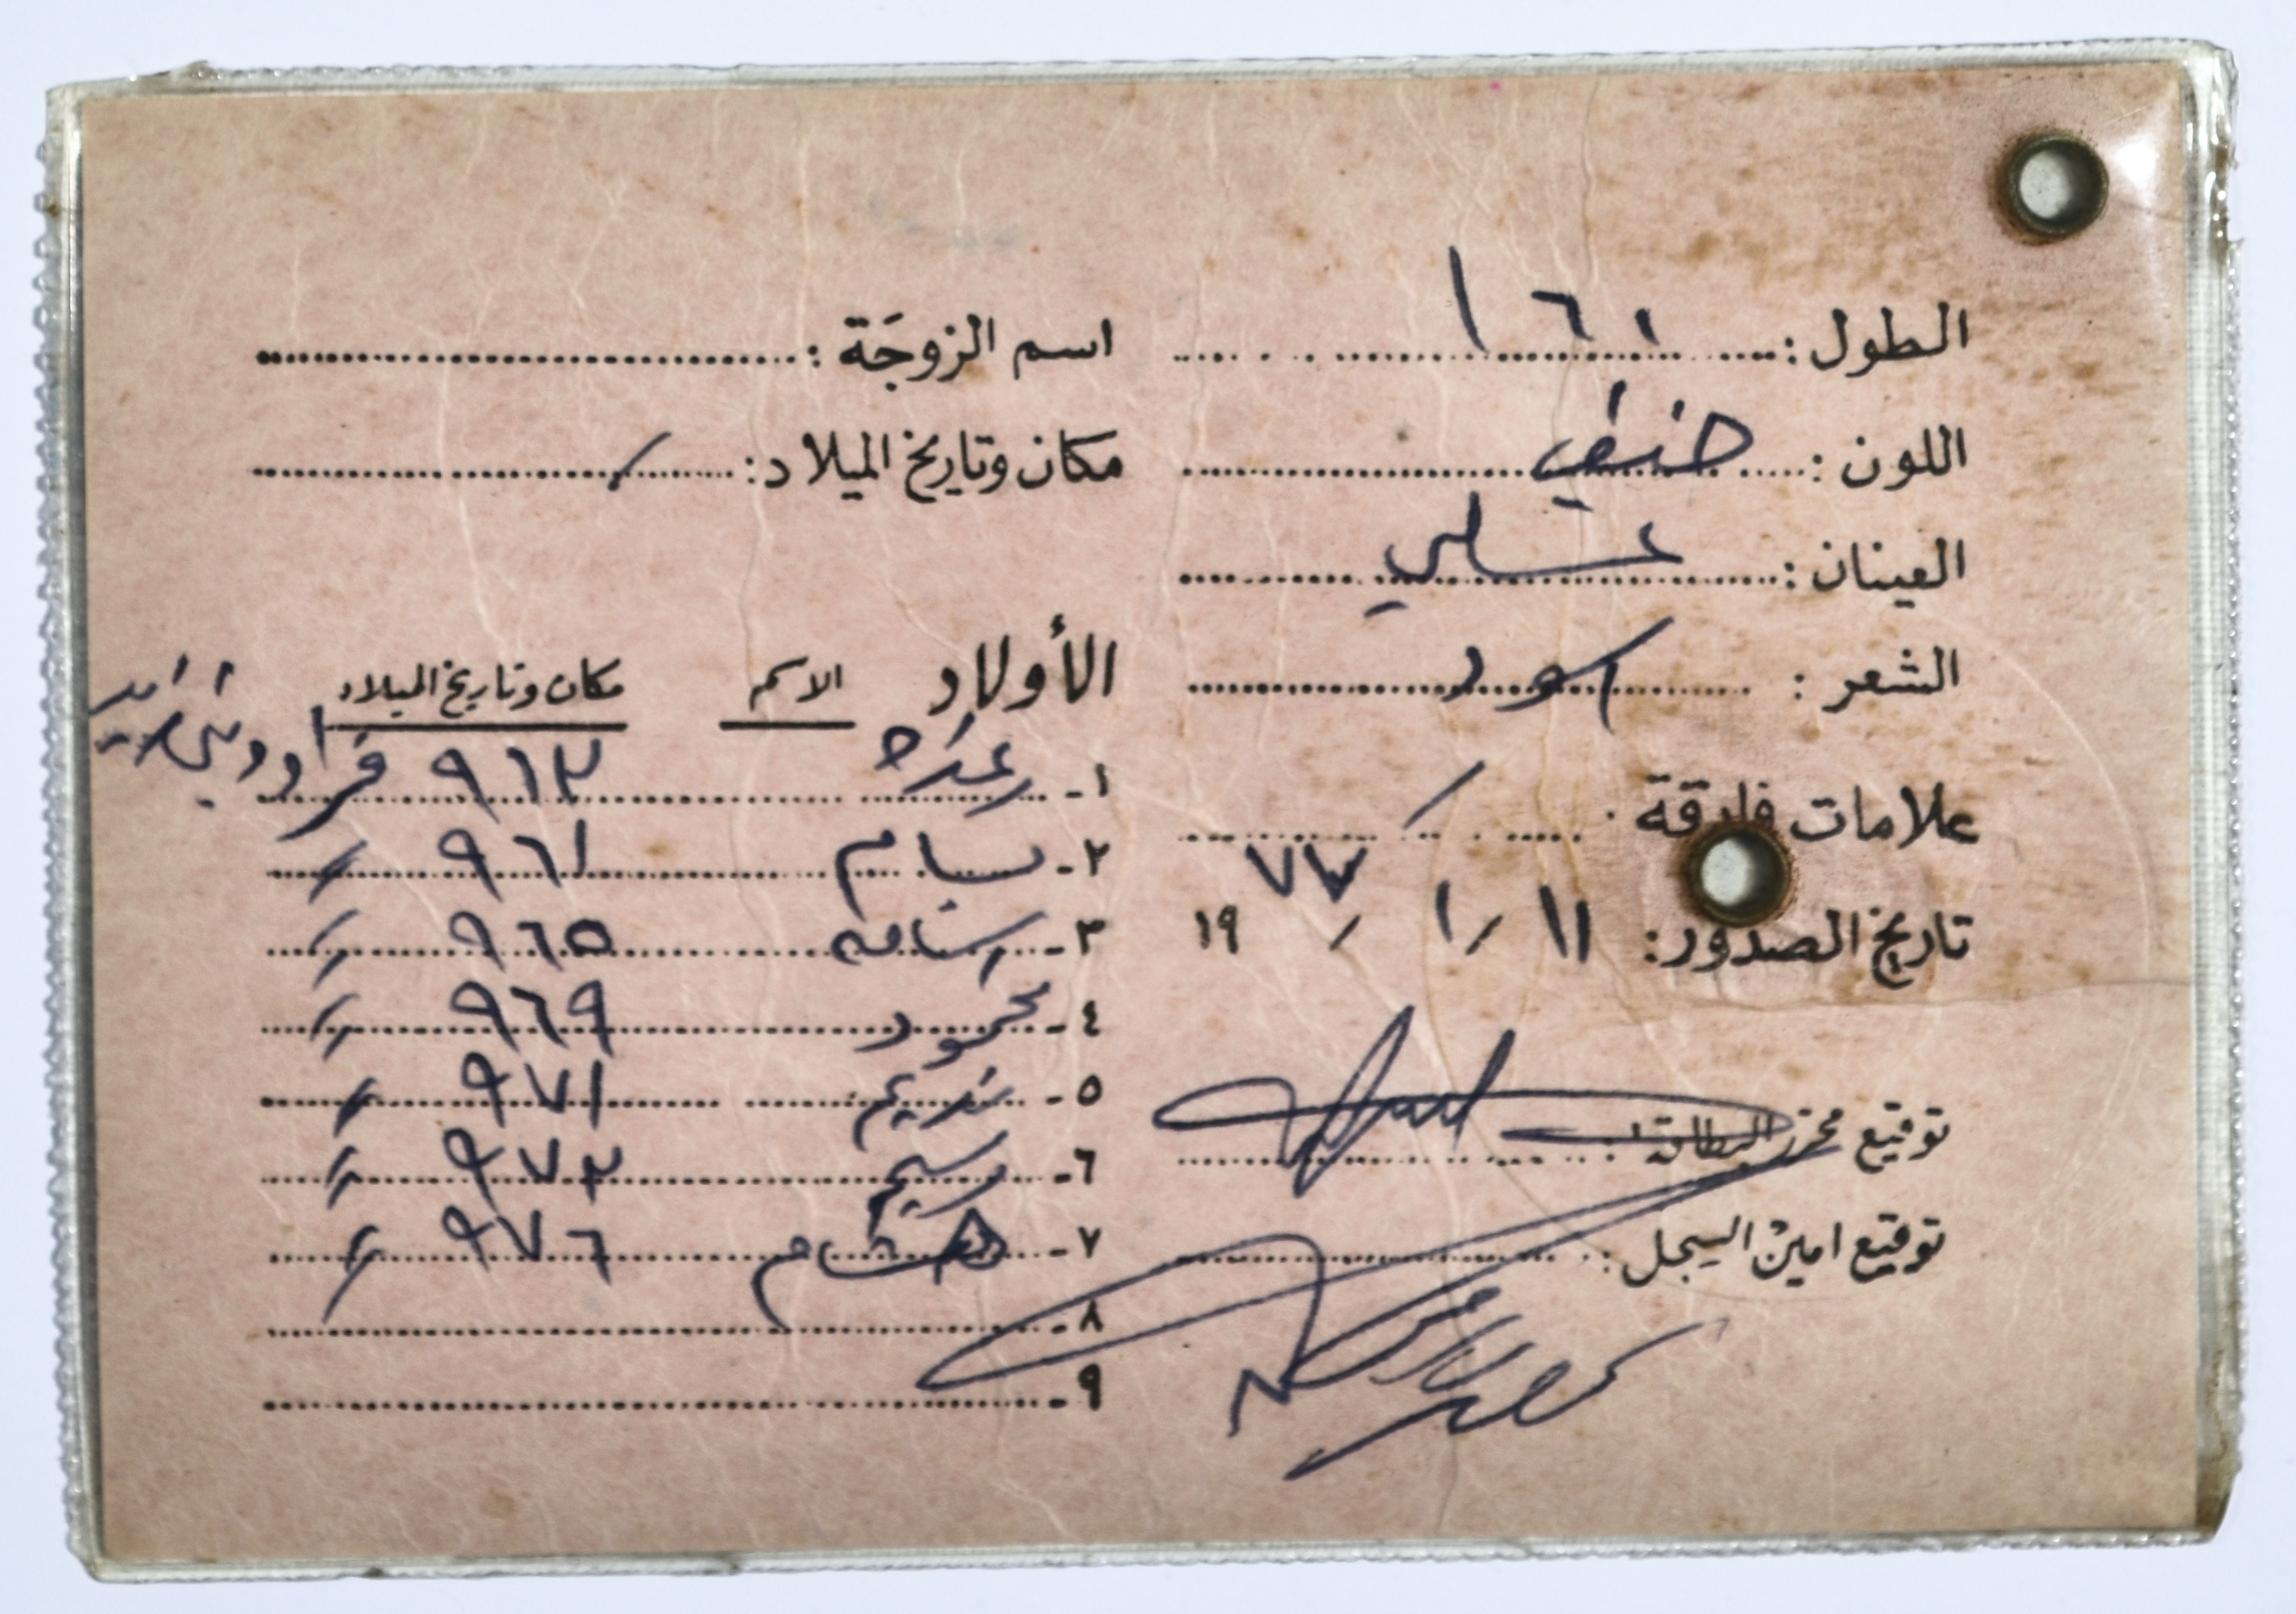 الطول: ١٦١
اللون: حنطي
العينان: عسلي
الشعر: اسود
علامات فارقة /
تاريخ الصدور: ١١ / ١ / ١٩٧٧
توقيع محرر البطاقة:
توقيع امين السجل:
اسم الزوجَة:
مكان وتاريخ الميلاد: /
الأولاد الاسم مكان وتاريخ الميلاد
١- ٩٦٢
٢- بسام ٩٦١ //
٣- اسامه ٩٦٥ //
٤- محمود ٩٦٩ //
٥- نديم ٩٧١ //
٦- وسيم ٩٧٢ //
٧- هشام ٩٧٦ //
٨-
٩-